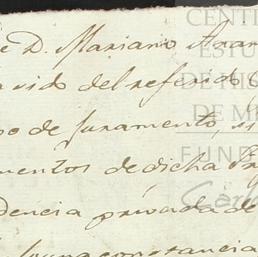 e D. Mariano Aran
vido del referido
o de juramento, s
mentos de dicha
dencia privada de
constancia
CENT
ESTU
DE HI
DE M
FUND